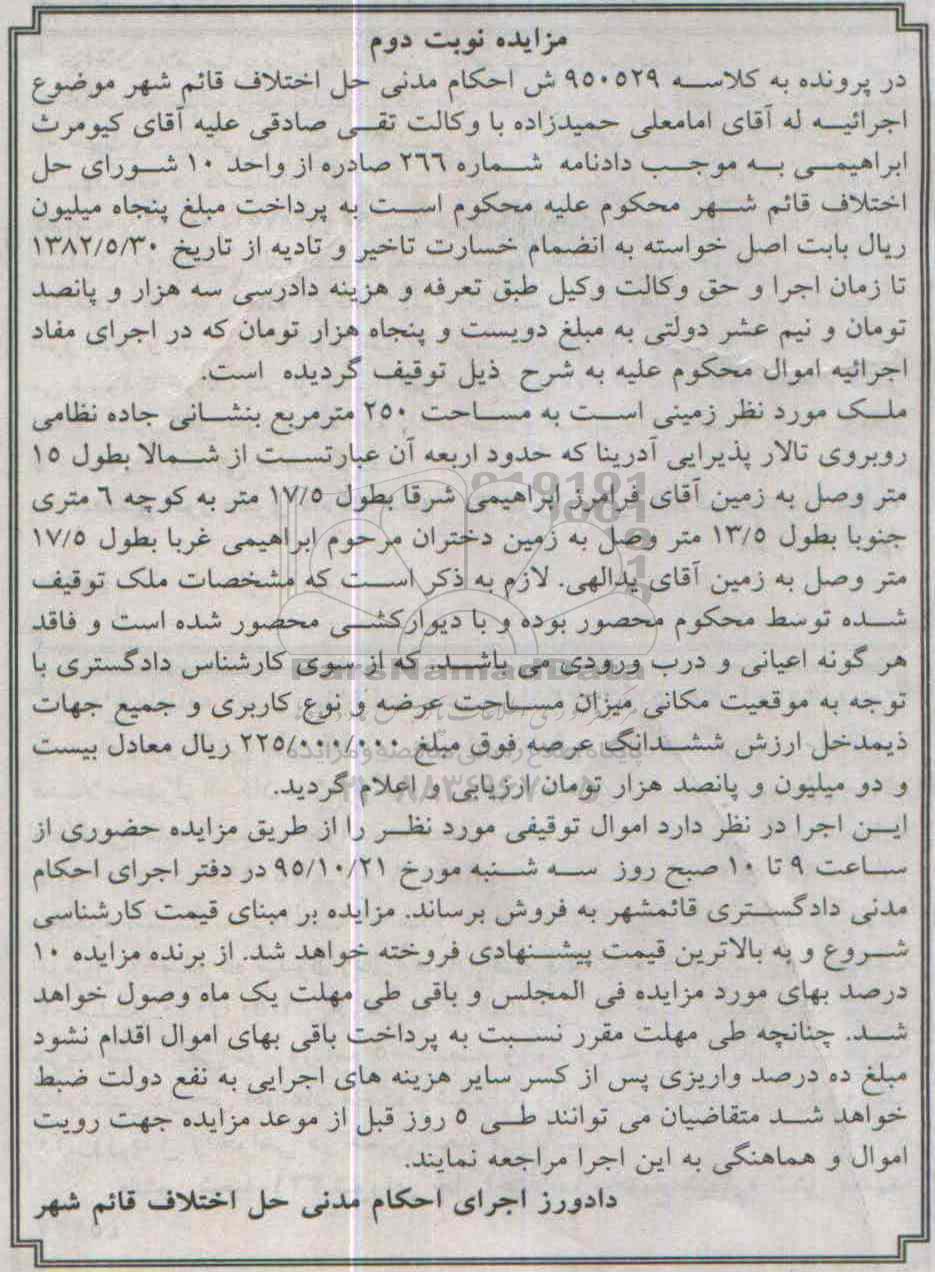 مزایده نوبت دوم
در پرونده به کلاسه ۹۵۰۵۲۹ ش احکام مدنی حل اختلاف قائم شهر موضوع
اجرائیه له آقای امامعلی حمیدزاده با وکالت تقی صادقی علیه آقای کیومرث
ابراهیمی به موجب دادنامه شماره ۲۶۶ صادره از واحد ۱۰ شورای حل
اختلاف قائم شهر محکوم علیه محکوم است به پرداخت مبلغ پنجاه میلیون
ریال بابت اصل خواسته به انضمام خسارت تاخیر و تادیه از تاریخ ۱۳۸۲/۵/۳۰
تا زمان اجرا و حق وکالت وکیل طبق تعرفه و هزینه دادرسی سه هزار و پانصد
تومان و نیم عشر دولتی به مبلغ دویست و پنجاه هزار تومان که در اجرای مفاد
اجرائیه اموال محکوم علیه به شرح ذیل توقیف گردیده است.
ملک مورد نظر زمینی است به مساحت ۲۵۰ مترمربع بنشانی جاده نظامی
روبروی تالار پذیرایی آدرینا که حدود اربعه آن عبارتست از شمالا بطول ۱۵
متر وصل به زمین آقای فرامرز ابراهیمی شرقا بطول ۱۷/۵ متر به کوچه ۶ متری
جنوبا بطول ۱۳/۵ متر وصل به زمین دختران مرحوم ابراهیمی غربا بطول ۱۷/۵
متر وصل به زمین آقای یدالهی. لازم به ذکر است که مشخصات ملک توقیف
شده توسط محکوم محصور بوده و با دیوارکشی محصور شده است و فاقد
هر گونه اعیانی و درب ورودی می باشد. که از سوی کارشناس دادگستری با
توجه به موقعیت مکانی میزان مساحت عرضه و نوع کاربری و جمیع جهات
ذیمدخل ارزش ششدانگ عرصه فوق مبلغ ۲۲۵/۰۰۰/۰۰۰ ریال معادل بیست
و دو میلیون و پانصد هزار تومان ارزیابی و اعلام گردید.
این اجرا در نظر دارد اموال توقیفی مورد نظر را از طریق مزایده حضوری از
ساعت ۹ تا ۱۰ صبح روز سه شنبه مورخ ۹۵/۱۰/۲۱ در دفتر اجرای احکام
مدنی دادگستری قائمشهر به فروش برساند. مزایده بر مبنای قیمت کارشناسی
شروع و به بالاترین قیمت پیشنهادی فروخته خواهد شد. از برنده مزایده ۱۰
درصد بهای مورد مزایده فی المجلس و باقی طی مهلت یک ماه وصول خواهد
شد. چنانچه طی مهلت مقرر نسبت به پرداخت باقی بهای اموال اقدام نشود
مبلغ ده درصد واریزی پس از کسر سایر هزینه های اجرایی به نفع دولت ضبط
خواهد شد متقاضیان می توانند طی ۵ روز قبل از موعد مزایده جهت رویت
اموال و هماهنگی به این اجرا مراجعه نمایند.
دادورز اجرای احکام مدنی حل اختلاف قائم شهر
ParsNamadData